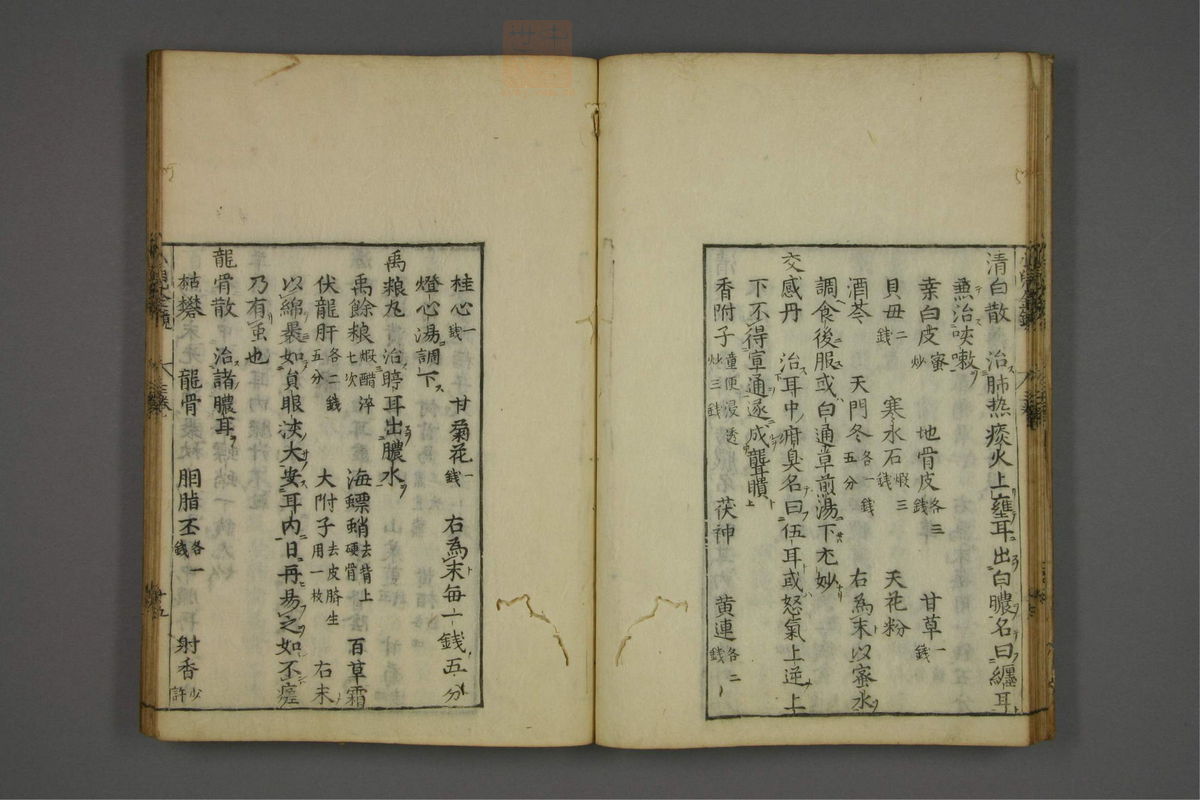 清白散　治肺热痰火上壅耳出白膿名曰纏耳
兼治咳嗽
桒白皮蜜炒　地骨皮各三銭　甘草一銭
貝母二銭　寒水石煆三銭　天花粉
酒芩　天門冬各一銭五分　右為末以蜜水
調食後服或白通草煎湯下尤妙
交感丹　治耳中疳臭名曰伍耳或怒氣上逆上
下不得宣通遂成聾聵
香附子童便浸透炒三銭　茯神　黄連各二銭
桂心一銭　甘菊花一銭　右為末毎一銭五分
燈心湯調下
禹粮丸　治聤耳出膿水
禹餘粮煆醋淬七次　海螵蛸去背上硬骨　百草霜
伏龍肝各二銭五分　大附子去皮臍生用一枚　右末
以綿裹如貟眼浹大安耳内日再易之如不瘥
乃有虫也
龍骨散　治諸膿耳
枯礬　龍骨　胭脂丕各一銭　射香少許